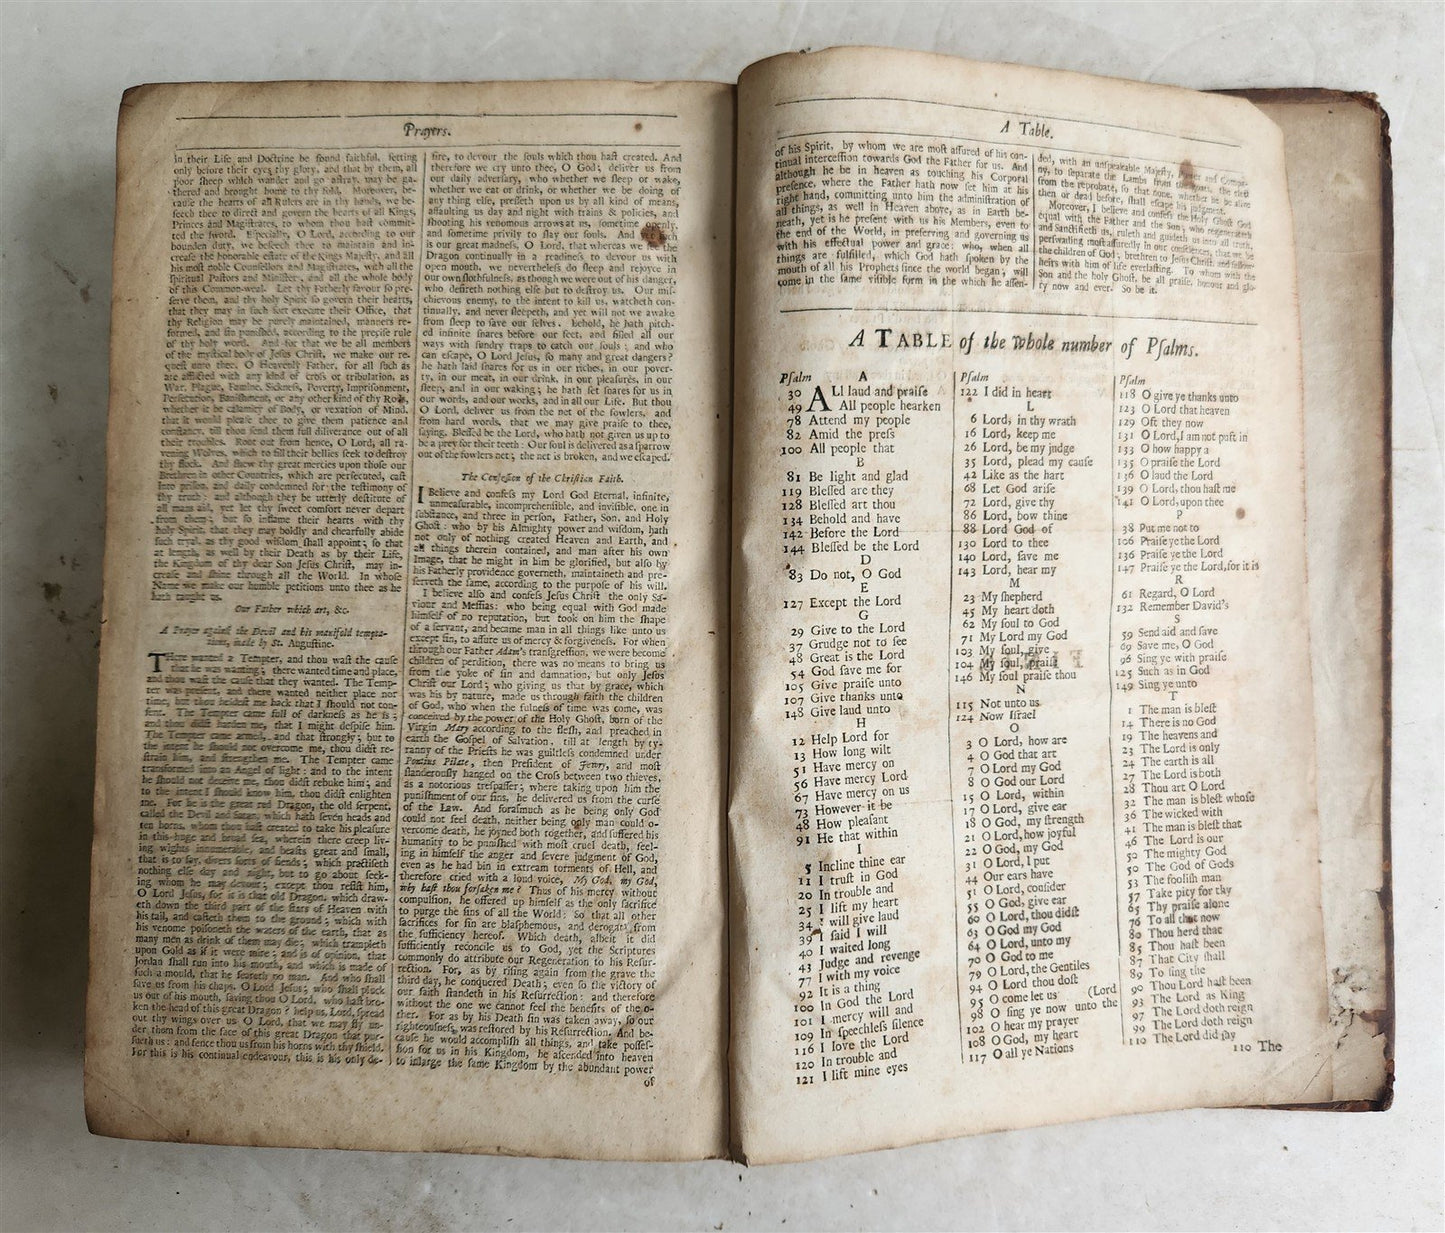 Prayers.
in their Life and Doctrine be found faithful, ſetting
only before their eyes thy glory, and that by them, all
poor ſheep which wander and go aſtray, may be ga-
thered and brought home to thy fold. Moreover, be-
cauſe the hearts of all Rulers are in thy hands, we be-
ſeech thee to direct and govern the hearts of all Kings,
Princes and Magiſtrates, to whom thou haſt commit-
ted the ſword. Eſpecially, O Lord, according to our
bounden duty, we beſeech thee to maintain and in-
creaſe the honorable eſtate of the Kings Majeſty, and all
his moſt noble Counſellors and Magiſtrates, with all the
Spiritual Paſtors and Miniſters, and all the whole body
of this Common-weal. Let thy Fatherly favour ſo pre-
ſerve them, and thy holy Spirit ſo govern their hearts,
that they may in ſuch ſort execute their Office, that
thy Religion may be purely maintained, manners re-
formed, and ſin puniſhed, according to the preciſe rule
of thy holy word. And for that we be all members
of the myſtical body of Jeſus Chriſt, we make our re-
queſt unto thee, O Heavenly Father, for all ſuch as
are afflicted with any kind of croſs or tribulation, as
War, Plague, Famine, Sickneſs, Poverty, Impriſonment,
Perſecution, Baniſhment, or any other kind of thy Rods,
whether it be calamity of Body, or vexation of Mind,
that it would pleaſe thee to give them patience and
conſtancy, till thou ſend them full deliverance out of all
their troubles. Root out from hence, O Lord, all ra-
vening Wolves, which to fill their bellies ſeek to deſtroy
thy flock. And ſhew thy great mercies upon thoſe our
Brethren in other Countries, which are perſecuted, caſt
into priſon, and daily condemned for the teſtimony of
thy truth: and although they be utterly deſtitute of
all mans aid, yet let thy ſweet comfort never depart
from them: but ſo inflame their hearts with thy
holy Spirit, that they may boldly and chearfully abide
ſuch tryal, as thy good wiſdom ſhall appoint; ſo that
at length, as well by their Death as by their Life,
the Kingdom of thy dear Son Jeſus Chriſt, may in-
creaſe and ſhine through all the World. In whoſe
Name we make our humble petitions unto thee as he
hath taught us.
Our Father which art, &c.
A Prayer againſt the Devil and his manifold tempta-
tions, made by St. Auguſtine.
THere wanted a Tempter, and thou waſt the cauſe
that he was wanting; there wanted time and place,
and thou waſt the cauſe that they wanted. The Temp-
ter was preſent, and there wanted neither place nor
time, but thou heldeſt me back that I ſhould not con-
ſent. The Tempter came full of darkneſs as he is;
and thou didſt harden me, that I might deſpiſe him.
The Tempter came armed, and that ſtrongly; but to
the intent he ſhould not overcome me, thou didſt re-
ſtrain him, and ſtrengthen me. The Tempter came
transformed into an Angel of light: and to the intent
he ſhould not deceive me, thou didſt rebuke him; and
to the intent I ſhould know him, thou didſt enlighten
me. For he is the great red Dragon, the old ſerpent,
called the Devil and Satan, which hath ſeven heads and
ten horns, whom thou haſt created to take his pleaſure
in this huge and broad ſea, wherein there creep liv-
ing wights innumerable, and beaſts great and ſmall,
that is to ſay, divers ſorts of fiends; which practiſeth
nothing elſe day and night, but to go about ſeek-
ing whom he may devour; except thou reſiſt him,
O Lord Jeſus, for it is that old Dragon, which draw-
eth down the third part of the ſtars of Heaven with
his tail, and caſteth them to the ground; which with
his venome poiſoneth the waters of the earth, that as
many men as drink of them may die; which trampleth
upon Gold as if it were mire; and is of opinion, that
Jordan ſhall run into his mouth, and which is made of
ſuch a mould, that he feareth no man. And who ſhall
ſave us from his chaps, O Lord Jeſus; who ſhall pluck
us out of his mouth, ſaving thou O Lord, who haſt bro-
ken the head of this great Dragon? help us, Lord, ſpread
out thy wings over us O Lord, that we may fly un-
der them from the face of this great Dragon that pur-
ſueth us: and fence thou us from his horns with thy ſhield.
For this is his continual endeavour, this is his only de-
ſire, to devour the ſouls which thou haſt created. And
therefore we cry unto thee, O God; deliver us from
our daily adverſary, who whether we ſleep or wake,
whether we eat or drink, or whether we be doing of
any thing elſe, preſſeth upon us by all kind of means,
aſſaulting us day and night with trains & policies, and
ſhooting his venomous arrows at us, ſometime openly,
and ſometime privily to ſlay our ſouls. And yet ſuch
is our great madneſs, O Lord, that whereas we ſee the
Dragon continually in a readineſs to devour us with
open mouth, we nevertheleſs do ſleep and rejoyce in
our own ſlothfulneſs, as though we were out of his danger,
who deſireth nothing elſe but to deſtroy us. Our miſ-
chievous enemy, to the intent to kill us, watcheth con-
tinually, and never ſleepeth, and yet will not we awake
from ſleep to ſave our ſelves. behold, he hath pitch-
ed infinite ſnares before our feet, and filled all our
ways with ſundry traps to catch our ſouls; and who
can eſcape, O Lord Jeſus, ſo many and great dangers?
he hath laid ſnares for us in our riches, in our pover-
ty, in our meat, in our drink, in our pleaſures, in our
ſleep, and in our waking; he hath ſet ſnares for us in
our words, and our works, and in all our Life. But thou
O Lord, deliver us from the net of the fowlers, and
from hard words, that we may give praiſe to thee,
ſaying, Bleſſed be the Lord, who hath not given us up to
be a prey for their teeth: Our ſoul is delivered as a ſparrow
out of the fowlers net; the net is broken, and we eſcaped.
The Confeſſion of the Chriſtian Faith.
I Believe and confeſs my Lord God Eternal, infinite,
unmeaſurable, incomprehenſible, and inviſible, one in
ſubſtance, and three in perſon, Father, Son, and Holy
Ghoſt: who by his Almighty power and wiſdom, hath
not only of nothing created Heaven and Earth, and
all things therein contained, and man after his own
Image, that he might in him be glorified, but alſo by
his Fatherly providence governeth, maintaineth and pre-
ſerveth the ſame, according to the purpoſe of his will.
I believe alſo and confeſs Jeſus Chriſt the only Sa-
viour and Meſſias: who being equal with God made
himſelf of no reputation, but took on him the ſhape
of a ſervant, and became man in all things like unto us
except ſin, to aſſure us of mercy & forgiveneſs. For when
through our Father Adam's tranſgreſſion, we were become
children of perdition, there was no means to bring us
from the yoke of ſin and damnation, but only Jeſus
Chriſt our Lord; who giving us that by grace, which
was his by nature, made us through faith the children
of God, who when the fulneſs of time was come, was
conceived by the power of the Holy Ghoſt, born of the
Virgin Mary according to the fleſh, and preached in
earth the Goſpel of Salvation, till at length by ty-
ranny of the Prieſts he was guiltleſs condemned under
Pontius Pilate, then Preſident of Jewry, and moſt
ſlanderouſly hanged on the Croſs between two thieves,
as a notorious treſpaſſer; where taking upon him the
puniſhment of our ſins, he delivered us from the curſe
of the Law. And foraſmuch as he being only God
could not feel death, neither being only man could o-
vercome death, he joyned both together, and ſuffered his
humanity to be puniſhed with moſt cruel death, feel-
ing in himſelf the anger and ſevere judgment of God,
even as he had bin in extream torments of Hell, and
therefore cried with a loud voice, My God, my God,
why haſt thou forſaken me? Thus of his mercy without
compulſion, he offered up himſelf as the only ſacrifice
to purge the ſins of all the World: So that all other
ſacrifices for ſin are blaſphemous, and derogate from
the ſufficiency hereof. Which death, albeit it did
ſufficiently reconcile us to God, yet the Scriptures
commonly do attribute our Regeneration to his Reſur-
rection. For, as by riſing again from the grave the
third day, he conquered Death; even ſo the victory of
our faith ſtandeth in his Reſurrection: and therefore
without the one we cannot feel the benefits of the o-
ther. For as by his Death ſin was taken away, ſo our
righteouſneſs, was reſtored by his Reſurrection. And be-
cauſe he would accompliſh all things, and take poſſeſ-
ſion for us in his Kingdom, he aſcended into heaven
to inlarge the ſame Kingdom by the abundant power
of
A Table.
of his Spirit, by whom we are moſt aſſured of his con-
tinual interceſſion towards God the Father for us. And
although he be in heaven as touching his Corporal
preſence, where the Father hath now ſet him at his
right hand, committing unto him the adminiſtration of
all things, as well in Heaven above, as in Earth be-
neath, yet is he preſent with us his Members, even to
the end of the World, in preſerving and governing us
with his effectual power and grace: who, when all
things are fulfilled, which God hath ſpoken by the
mouth of all his Prophets ſince the world began, will
come in the ſame viſible form in the which he aſcen-
ded, with an unſpeakable Majeſty, Power and Compa-
ny, to ſeparate the Lambs from the goats, the elect
from the reprobate, ſo that none, whether he be alive
then or dead before, ſhall eſcape his judgment.
Moreover, I believe and confeſs the Holy Ghoſt God
equal with the Father and the Son; who regenerateth
and Sanctifieth us, ruleth and guideth us into all truth,
perſwading moſt aſſuredly in our conſciences, that we be
the children of God; brethren to Jeſus Chriſt and fellow-
heirs with him of life everlaſting. To whom with the
Son and the holy Ghoſt, be all praiſe, honour and glo-
ry now and ever. So be it.
A TABLE of the Whole number of Pſalms.
Pſalm A
30 ALl laud and praiſe
49 All people hearken
78 Attend my people
82 Amid the preſs
100 All people that
B
81 Be light and glad
119 Bleſſed are they
128 Bleſſed art thou
134 Behold and have
142 Before the Lord
144 Bleſſed be the Lord
D
83 Do not, O God
E
127 Except the Lord
G
29 Give to the Lord
37 Grudge not to ſee
48 Great is the Lord
54 God ſave me for
105 Give praiſe unto
107 Give thanks unto
148 Give laud unto
H
12 Help Lord for
13 How long wilt
51 Have mercy on
56 Have mercy Lord
67 Have mercy on us
73 However it be
48 How pleaſant
91 He that within
I
5 Incline thine ear
11 I truſt in God
20 In trouble and
25 I lift my heart
34 I will give laud
39 I ſaid I will
40 I waited long
43 Judge and revenge
77 I with my voice
92 It is a thing
100 In God the Lord
101 I mercy will and
109 In ſpeechleſs ſilence
116 I love the Lord
120 In trouble and
121 I lift mine eyes
Pſalm
122 I did in heart
L
6 Lord, in thy wrath
16 Lord, keep me
26 Lord, be my judge
35 Lord, plead my cauſe
42 Like as the hart
68 Let God ariſe
72 Lord, give thy
86 Lord, bow thine
88 Lord God of
130 Lord to thee
140 Lord, ſave me
143 Lord, hear my
M
23 My ſhepherd
45 My heart doth
62 My ſoul to God
71 My Lord my God
103 My ſoul, give
104 My ſoul, praiſe
146 My ſoul praiſe thou
N
115 Not unto us
124 Now Iſrael
O
3 O Lord, how are
4 O God that art
7 O Lord my God
8 O God our Lord
15 O Lord, within
17 O Lord, give ear
18 O God, my ſtrength
21 O Lord, how joyful
22 O God, my God
31 O Lord, I put
44 Our ears have
51 O Lord, conſider
55 O God, give ear
60 O Lord, thou didſt
63 O God my God
64 O Lord, unto my
70 O God to me
79 O Lord, the Gentiles
94 O Lord thou doſt
95 O come let us (Lord
98 O ſing ye now unto the
102 O hear my prayer
108 O God, my heart
117 O all ye Nations
Pſalm
118 O give ye thanks unto
123 O Lord that heaven
129 Oft they now
131 O Lord, I am not puft in
133 O how happy a
135 O praiſe the Lord
136 O laud the Lord
139 O Lord, thou haſt me
141 O Lord, upon thee
P
38 Put me not to
106 Praiſe ye the Lord
136 Praiſe ye the Lord
147 Praiſe ye the Lord, for it is
R
61 Regard, O Lord
132 Remember David's
S
59 Send aid and ſave
69 Save me, O God
96 Sing ye with praiſe
125 Such as in God
149 Sing ye unto
T
1 The man is bleſt
14 There is no God
19 The heavens and
23 The Lord is only
24 The earth is all
27 The Lord is both
28 Thou art O Lord
32 The man is bleſt whoſe
36 The wicked with
41 The man is bleſt that
46 The Lord is our
50 The mighty God
50 The God of Gods
53 The fooliſh man
57 Take pity for thy
65 Thy praiſe alone
76 To all that now
80 Thou herd that
85 Thou haſt been
87 That City ſhall
89 To ſing the
90 Thou Lord haſt been
93 The Lord as King
97 The Lord doth reign
99 The Lord doth reign
110 The Lord did ſay
110 The